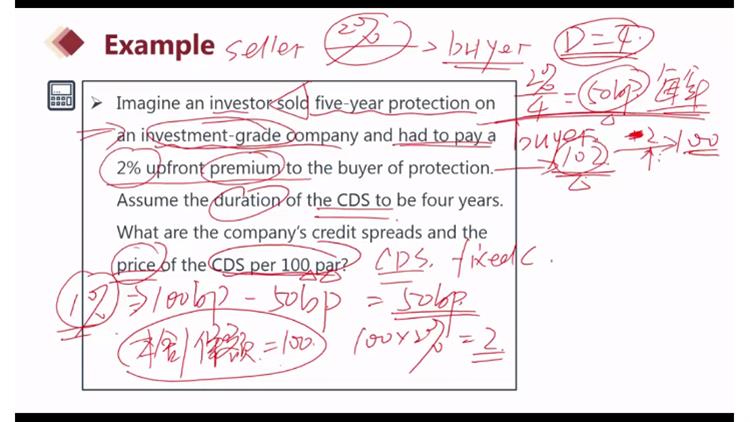 Example seller 2% → buyer D = 4.
2%/4 = 50bp 每年
Imagine an investor sold five-year protection on
an investment-grade company and had to pay a
2% upfront premium to the buyer of protection.
buyer 102 → 100
Assume the duration of the CDS to be four years.
What are the company's credit spreads and the
price of the CDS per 100 par?
CDS. fixed C.
1% ⇒ 100bp - 50bp = 50bp.
= 100. 100 × 2% = 2